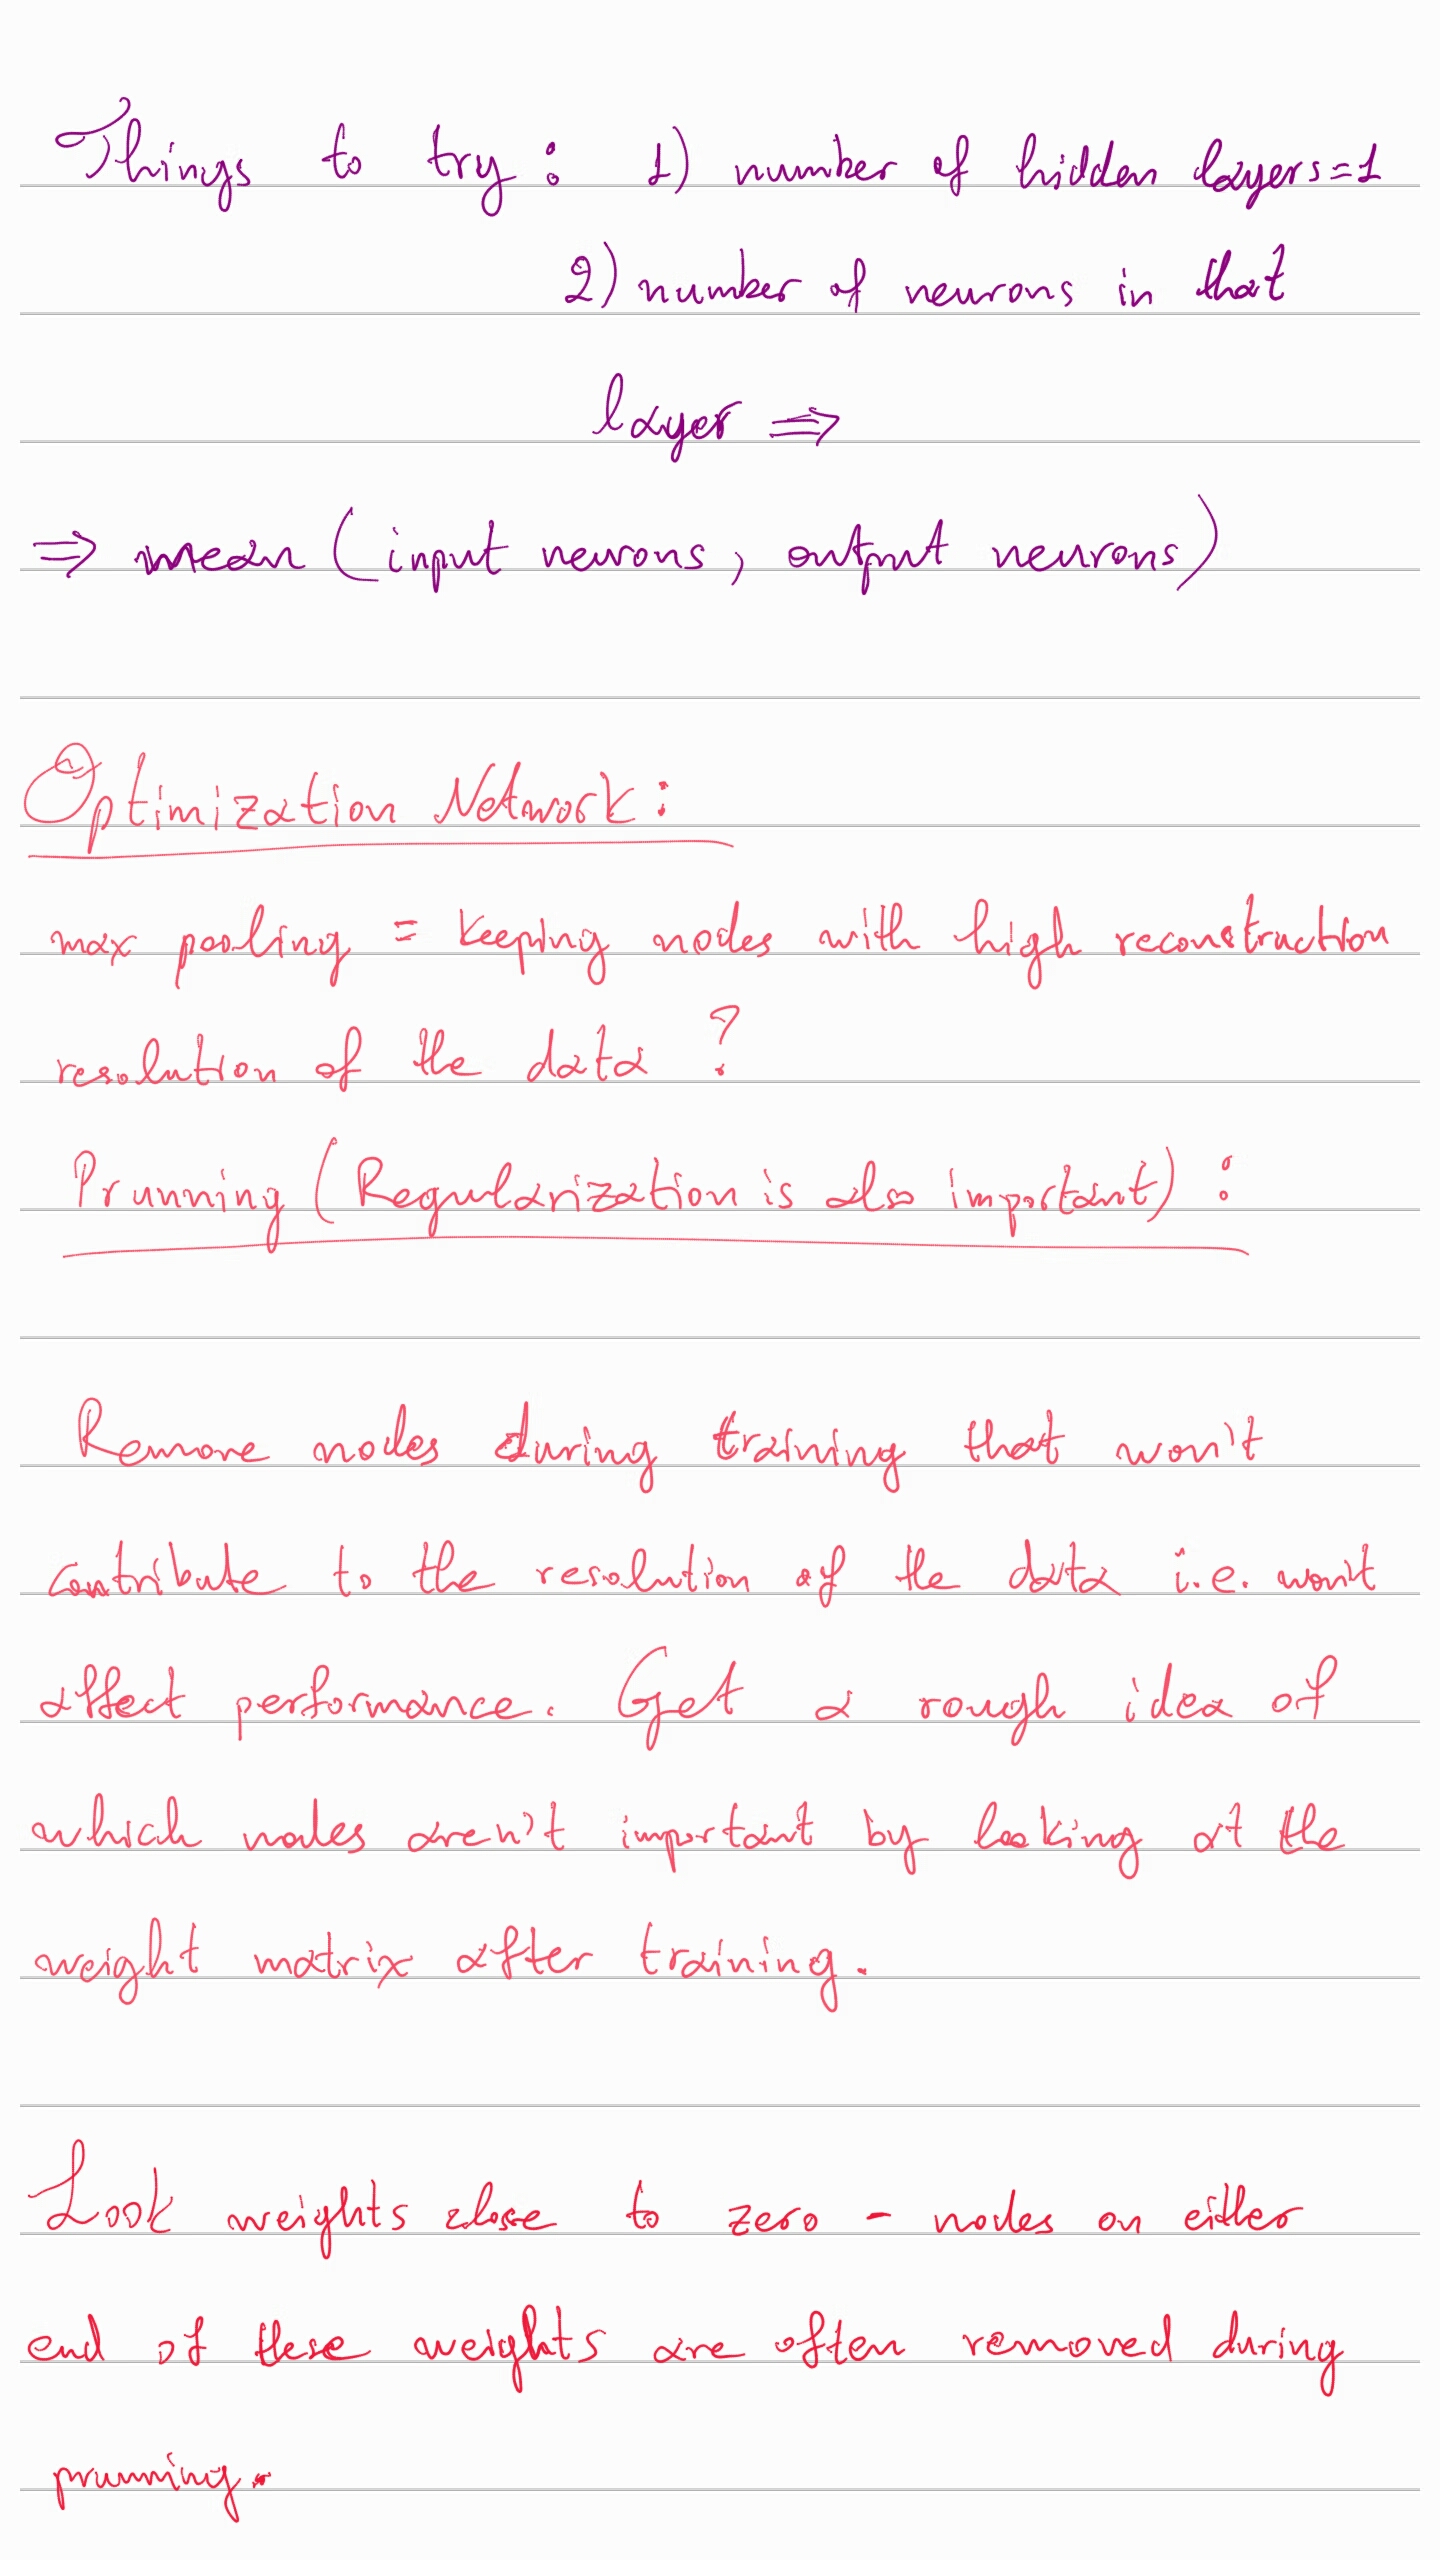 Things to try : 1) number of hidden layers=1
2) number of neurons in that
layer ⇒
⇒ mean (input neurons, output neurons)
Optimization Network:
max pooling = keeping nodes with high reconstruction
resolution of the data ?
Prunning (Regularization is also important) :
Remove nodes during training that won't
contribute to the resolution of the data i.e. won't
affect performance. Get a rough idea of
which nodes aren't important by looking at the
weight matrix after training.
Look weights close to zero - nodes on either
end of these weights are often removed during
prunning.